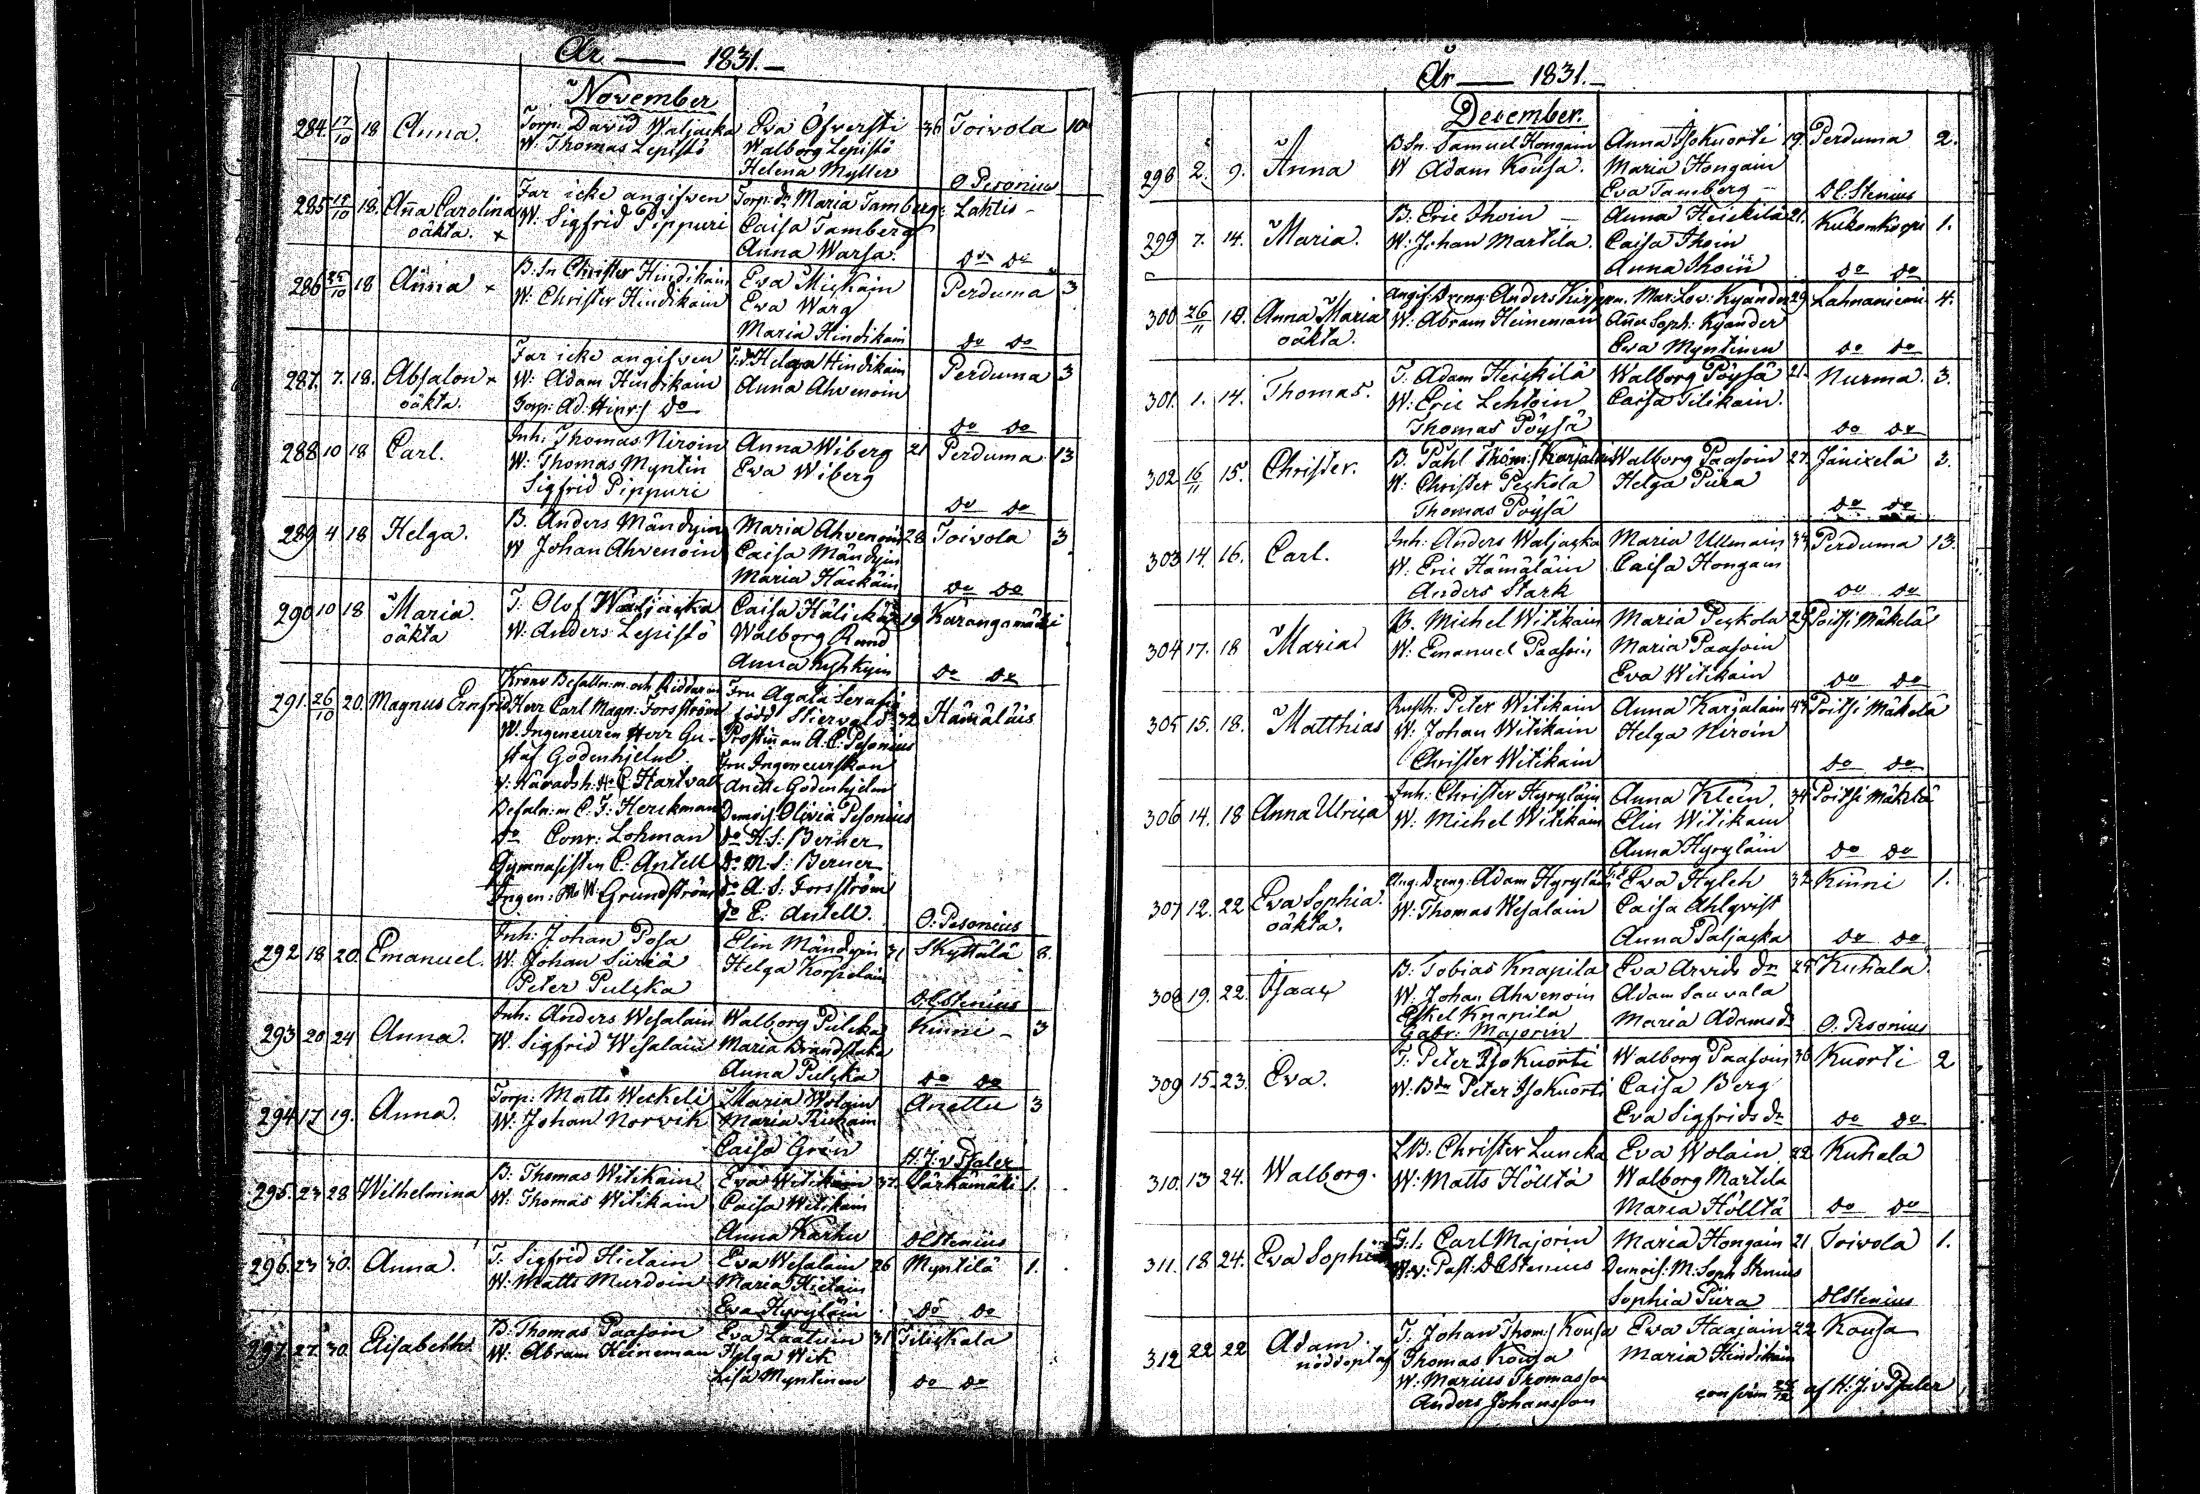 År — 1831.
November
284. 17/10 18 Anna. Torp: David Waljacka Eva Öfversti 36 Toivola 10
W. Thomas Lepistö Walborg Lepistö
Helena Myller O Pesonius
285 18. Aña Carolina Far icke angifven Torp: dr Maria Tamberg Lahtis
oäkta. x W: Sigfrid Pippuri Caisa Tamberg
Anna Warsa. do do
286 25/10 18 Anna x B. Sn Christer Hindikain Eva Miskain Perduma 3
W. Christer Hindikain Eva Warg
Maria Hindikain do do
287. 7. 18. Absalon x Far icke angifven Helga Hindikain Perduma 3
oäkta. W: Adam Hindikain Anna Ahvenoin
Torp: Ad: do do do
288 10 18 Carl. Inh: Thomas Niroin Anna Wiberg 21 Perduma 13
W: Thomas Myntin Eva Wiberg
Sigfrid Pippuri do do
289 4 18 Helga. B. Anders Mändyin Maria Ahvenoin 28 Toivola 3
W Johan Ahvenoin Caisa Mändyin
Maria Häckäin do do
290 10 18 Maria. T: Olof Waljacka Caisa 19 Karangamäki
oäkta W: Anders Lepistö Walborg
Anna Kyhkyin do do
291. 26/10 20. Magnus Ernfrid Krono Befalln:m och Riddaren Fru Agata Serafia
Herr Carl Magn: Forsström född 32 Hämäläis
W. Ingeneuren Herr Gu- Prostiñan A. C. Pesonius
staf Godenhjelm Fru Ingeneurskan
v: Häradsh: Hr C Hartvall Anette Godenhjelm
Befaln:m C. J: Herckman Demois: Olivia Pesonius
do Conr: Lohman do H. S: Berner
Gymnasisten C. Antell do N. S: Berner
Ingen: W: Grundström do A. S: Forsström
do E: Antell. O: Pesonius
292 18 20 Emanuel. Inh: Johan Posa Elin Mändyin 31 Skyttälä 8.
W. Johan Siiriä Helga Korpelain
Peter Pulska D. C Stenius
293 20 24 Anna. Inh: Anders Wesalain Walborg Pulska Kinni 3
W. Sigfrid Wesalain Maria Brandstake
Anna Pulska do do
294 17 19. Anna. Torp: Matts Weckeli Maria Wolain Anettu 3
W: Johan Norvik Maria
Caisa Grön H: J: v Pfaler
295. 23 28 Wilhelmina B. Thomas Witikain Eva Witikain 37. Särkämäki 1.
W: Thomas Witikain Caisa Witikain
Anna Karhu DC Stenius
296. 23 30. Anna. T: Sigfrid Hietain Eva Wesalain 26 Myntilä 1.
W: Matts Murdoin Maria Hietain
Eva Hyryläin do do
297. 27. 30. Elisabeth. B: Thomas Paasoin Eva Laatuin 31 Tiliskala
W: Abram Heineman Helga Wik
Lisa Myntinen do do
År — 1831.
December.
298 2. 9. Anna B. Sn. Samuel Hongain Anna Isokuorti 19. Perduma 2.
W Adam Kousa. Maria Hongain
Eva Tamberg D C. Stenius
299 7. 14. Maria. B: Eric Ihoin Anna Heickilä 21. Kukonkorpi 1.
W: Johan Martila. Caisa Ihoin
Anna Ihoin do do
300 26/11 18. Anna Maria Angif: Dreng: Anders Mar: Lov: Kyander 29 Lahnaniemi 4.
oäkta. W: Abram Heineman Aña Soph: Kyander
Eva Myntinen do do
301. 1. 14. Thomas. T. Adam Heickilä Walborg Pöysä 21. Nurma. 3.
W: Eric Lehtoin Caisa Tilikain.
Thomas Pöysä do do
302 16/11 15. Christer. B. Påhl Thom:s Karjalain Walborg Paasoin 27. Jänixelä 3.
W: Christer Peskola Helga Piira
Thomas Pöysä do do
303 14. 16. Carl. Inh: Anders Waljacka Maria Ullmain 34 Perduma 13.
W: Eric Hämäläin Caisa Hongain
Anders Stark do do
304 17. 18 Maria B. Michel Witikain Maria Peskola 29 Poitsi Mäkelä
W: Emanuel Paasoin Maria Paasoin
Eva Witikain do do
305 15. 18. Matthias Rusth: Peter Witikain Anna Karjalain 43 Poitsi Mäkelä
W: Johan Witikain Helga Niroin
Christer Witikain do do
306 14. 18 Anna Ulrica Inh: Christer Hyryläin Anna Kléen. 34 Poitsi Mäkelä
W: Michel Witikain Elin Witikain
Anna Hyryläin do do
307 12. 22 Eva Sophia. Ang. Dreng: Adam Hyryläin Eva Hyleh 32 Kinni 1.
oäkta. W: Thomas Wesalain Caisa Ahlqvist
Anna Paljacka do do
308 19. 22. Isaac B: Tobias Knapila Eva Arvids dr 25 Kuhala
W. Johan Ahvenoin Adam Sauvala
Eskel Knapila Maria Adamsdr
Gabr: Majorin O: Pesonius
309 15. 23. Eva. T: Peter Isokuorti Walborg Paasoin 36 Kuorti 2
W: Bdn Peter Isokuorti Caisa Berg
Eva Sigfrids dr do do
310. 13 24. Walborg. LB: Christer Luncka Eva Wolain 22 Kuhala
W: Matts Hölltä Walborg Martila
Maria Hölltä do do
311. 18 24. Eva Sophia Carl Majorin Maria Hongain 21 Toivola 1.
W: v: Past: DC Stenius Demois: M: Soph Stenius
Sophia Piira DC Stenius
312 22 22 Adam. T. Johan Thom:s Kousa Eva Haajain 22 Kousa
nöddöpt af Thomas Kousa Maria Hindikain
W: Marius Thomasson
Anders Johansson af H: J: v Pfaler